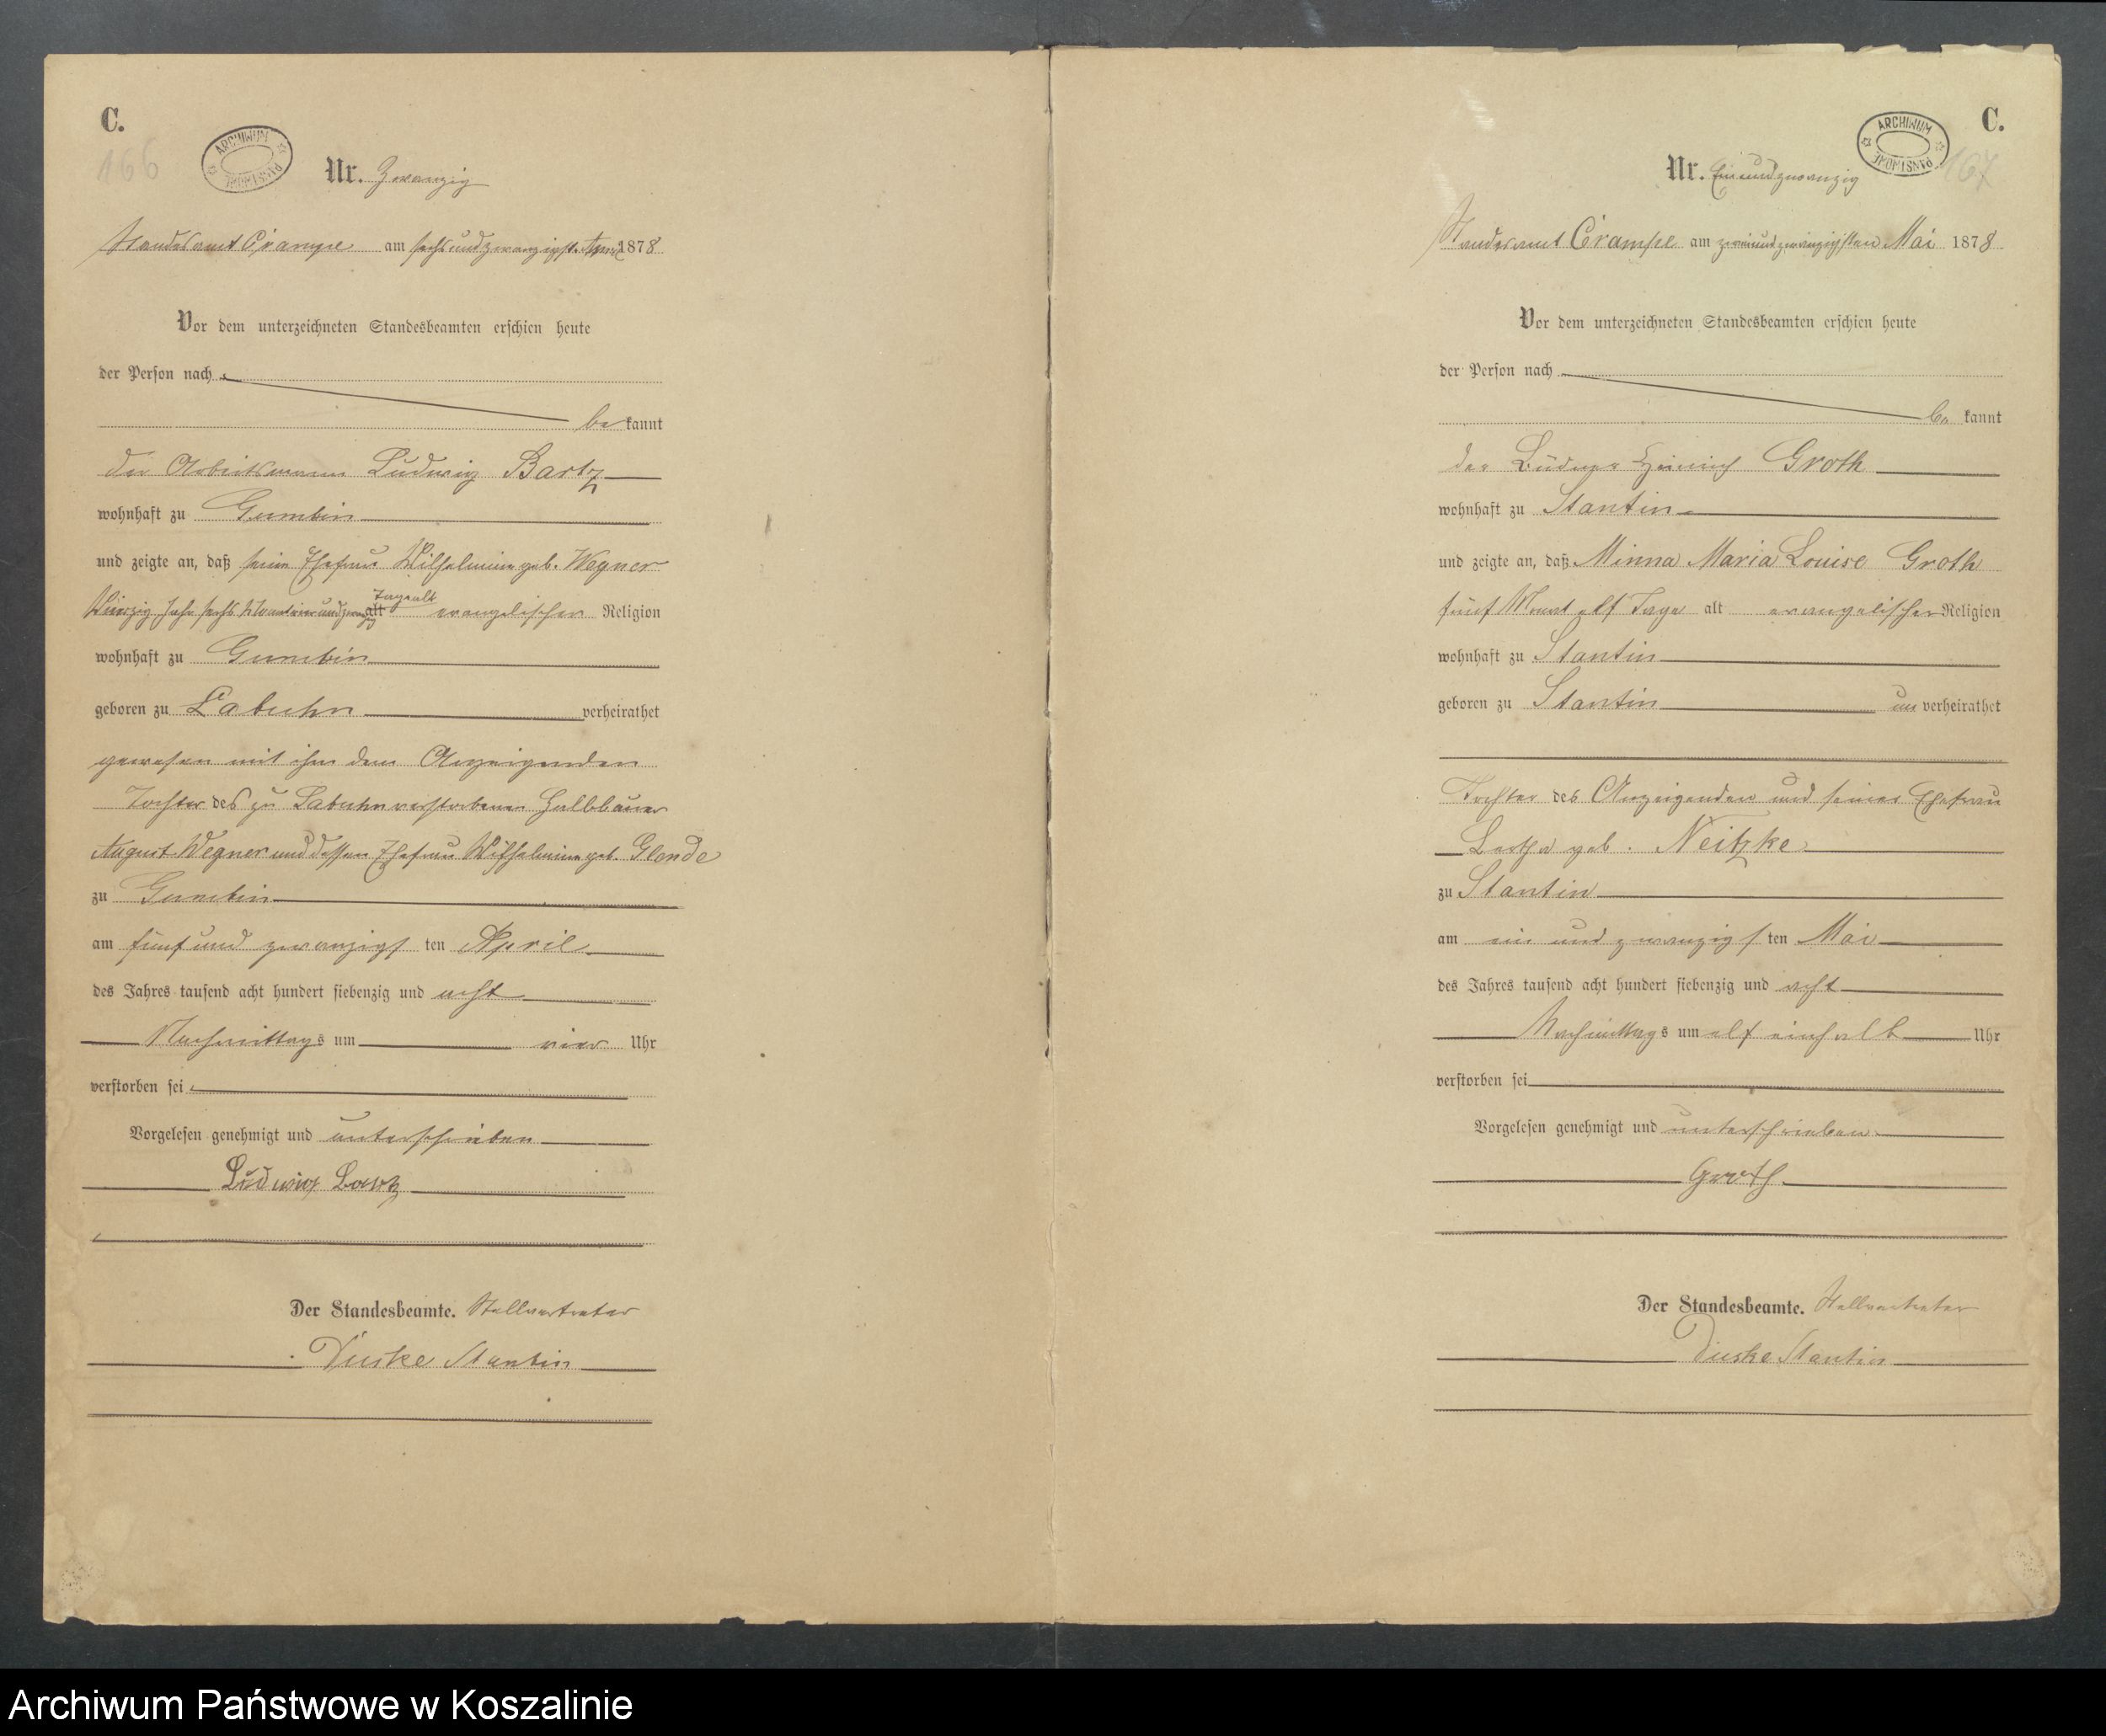 C.
166
ARCHIWUM PAŃSTWOWE
Nr. Zwanzig
Standesamt Crampe am sechsundzwanzigst. April 1878
Vor dem unterzeichneten Standesbeamten erschien heute
der Person nach
be kannt
der Arbeitsmann Ludwig Bartz
wohnhaft zu Gumbin
und zeigte an, daß seine Ehefrau Wilhelmine geb. Wegner
Tage alt
Vierzig Jahr sechs Monat alt evangelischer Religion
wohnhaft zu Gumbin
geboren zu Labuhn verheirathet
gewesen mit ihm dem Anzeigenden
Tochter des zu Labuhn verstorbenen Halbbauer
August Wegner und dessen Ehefrau Wilhelmine geb. Glende
zu Gumbin
am fünf und zwanzigs ten April
des Jahres tausend acht hundert siebenzig und acht
Nachmittags um vier Uhr
verstorben sei
Vorgelesen genehmigt und unterschrieben
Ludwig Bartz
Der Standesbeamte. Stellvertreter
Düske Stantin
C.
167
ARCHIWUM PAŃSTWOWE
Nr. Einundzwanzig
Standesamt Crampe am zweiundzwanzigsten Mai 1878
Vor dem unterzeichneten Standesbeamten erschien heute
der Person nach
be kannt
der Büdner Heinrich Groth
wohnhaft zu Stantin
und zeigte an, daß Minna Maria Louise Groth
fünf Monat elf Tage alt evangelischer Religion
wohnhaft zu Stantin
geboren zu Stantin un verheirathet
Tochter des Anzeigenden und seiner Ehefrau
Bertha geb. Neitzke
zu Stantin
am ein und zwanzigs ten Mai
des Jahres tausend acht hundert siebenzig und acht
Nachmittags um elf einhalb Uhr
verstorben sei
Vorgelesen genehmigt und unterschrieben
Groth
Der Standesbeamte. Stellvertreter
Düske Stantin
Archiwum Państwowe w Koszalinie